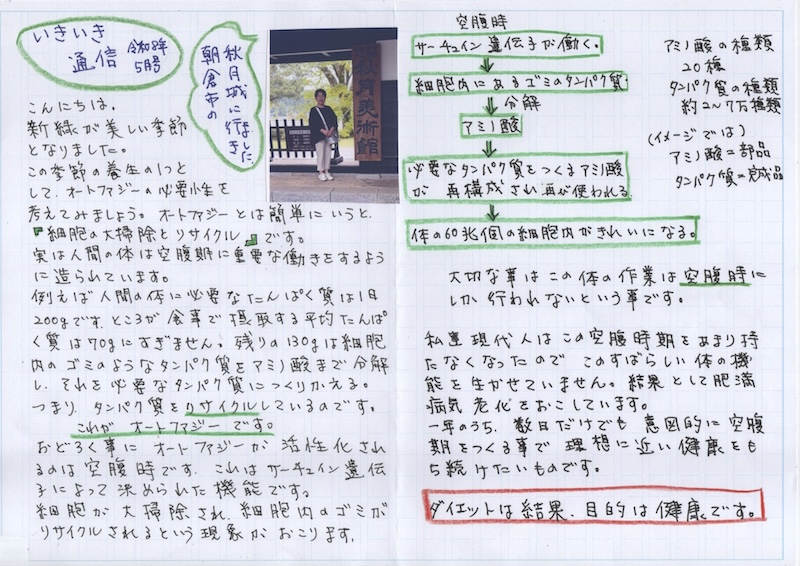 いきいき
通信
令和8年
5月号
秋月城に行きました
朝倉市の
秋月美術館
こんにちは。
新緑が美しい季節
となりました。
この季節の養生の1つと
して、オートファジーの必要性を
考えてみましょう。オートファジーとは簡単にいうと、
『細胞の大掃除とリサイクル』です。
実は人間の体は空腹期に重要な働きをするよう
に造られています。
例えば人間の体に必要なたんぱく質は1日
200gです。ところが食事で摂取する平均たんぱ
く質は70gにすぎません。残りの130gは細胞
内のゴミのようなタンパク質をアミノ酸まで分解
し、それを必要なタンパク質につくりかえる。
つまり、タンパク質をリサイクルしているのです。
これがオートファジーです。
おどろく事にオートファジーが活性化され
るのは空腹時です。これはサーチュイン遺伝
子によって決められた機能です。
細胞が大掃除され、細胞内のゴミが
リサイクルされるという現象がおこります。
空腹時
サーチュイン遺伝子が働く。
細胞内にあるゴミのタンパク質
分解
アミノ酸
必要なタンパク質をつくるアミノ酸
が再構成され再び使われる
体の60兆個の細胞内がきれいになる。
アミノ酸の種類
20種
タンパク質の種類
約2〜7万種類
(イメージでは)
アミノ酸=部品
タンパク質=完成品
大切な事はこの体の作業は空腹時に
しか行われないという事です。
私達現代人はこの空腹時期をあまり持
たなくなったので このすばらしい体の機
能を生かせていません。結果として肥満
病気 老化をおこしています。
一年のうち、数日だけでも意図的に空腹
期をつくる事で理想に近い健康をも
ち続けたいものです。
ダイエットは結果、目的は健康です。